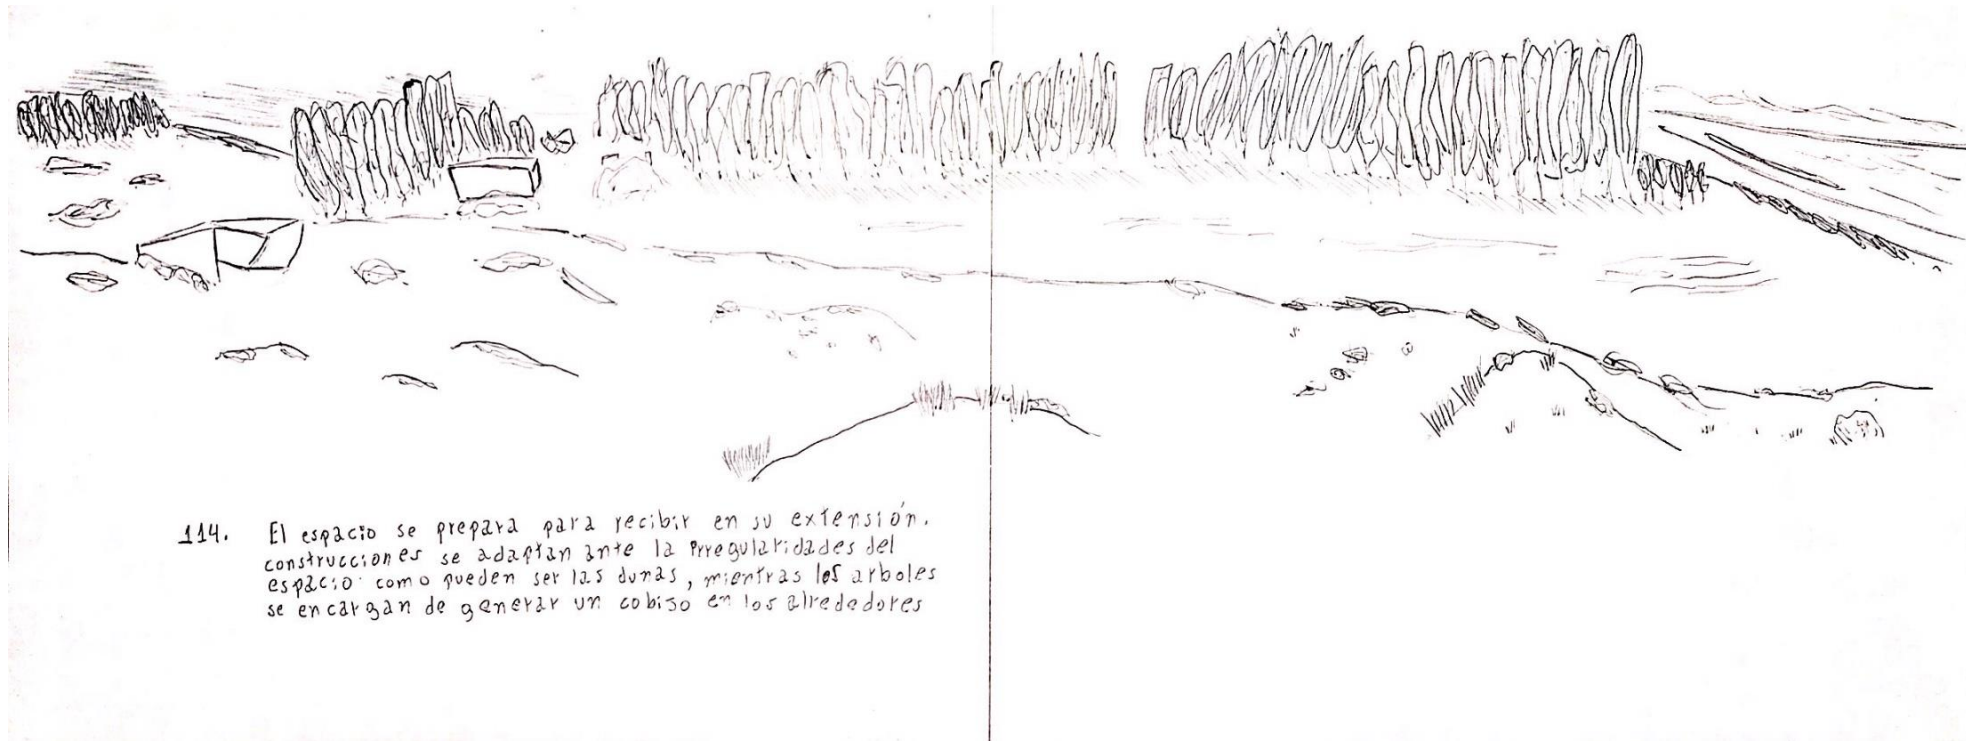 114. El espacio se prepara para recibir en su extensión.
construcciones se adaptan ante la irregularidades del
espacio como pueden ser las dunas, mientras los arboles
se encargan de generar un cobijo en los alrededores